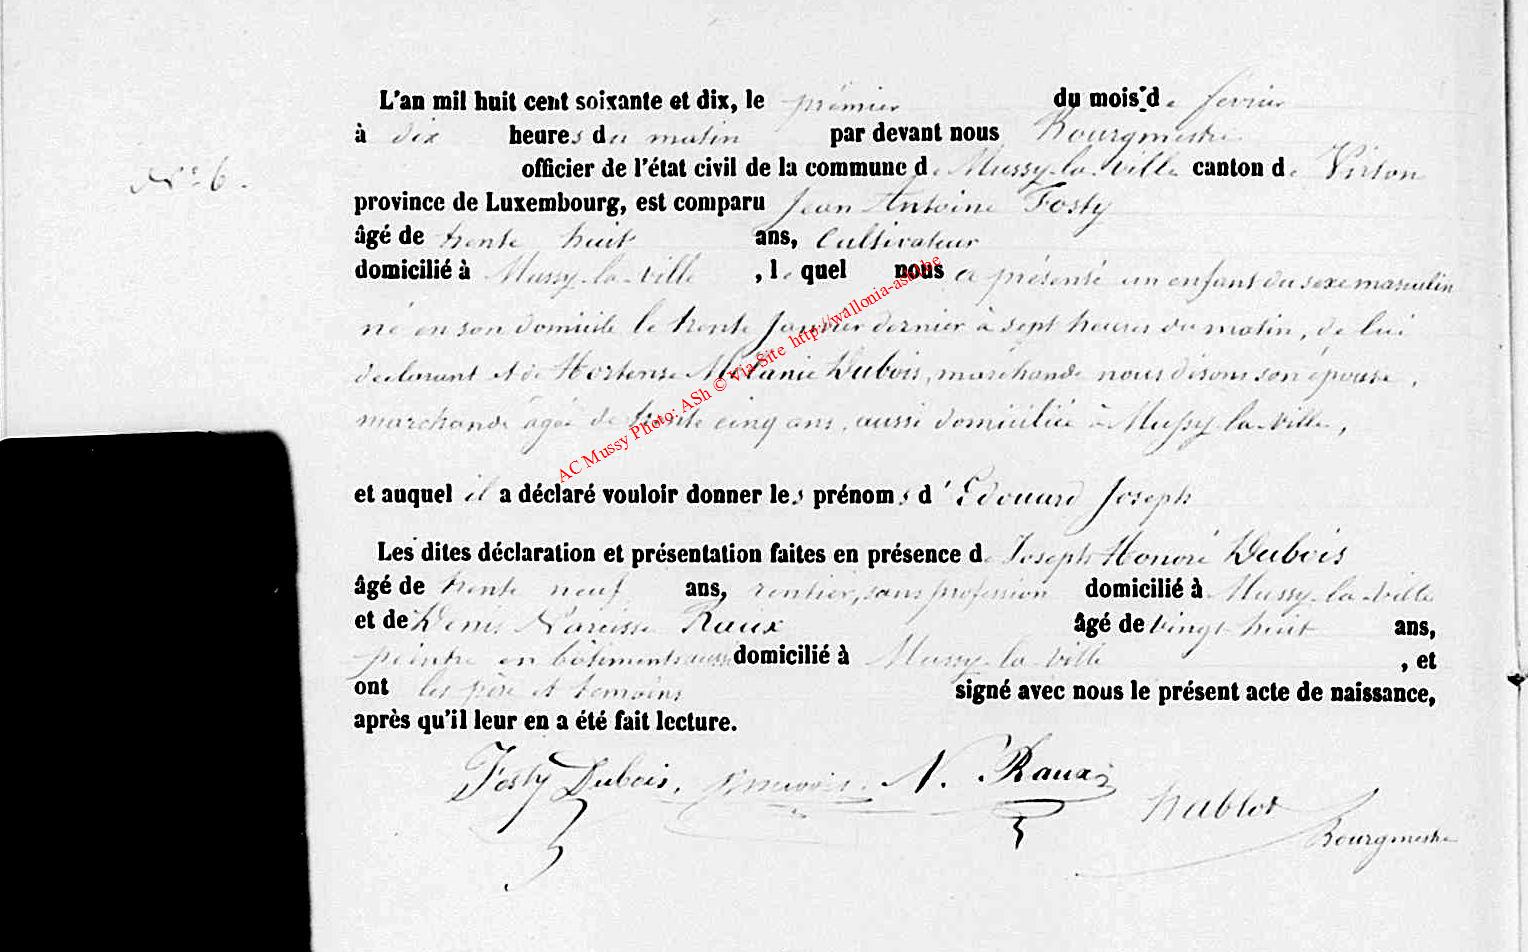 L'an mil huit cent soixante et dix, le prémier du mois de fevrier
à dix heures du matin par devant nous Bourgmestre
N° 6. officier de l'état civil de la commune de Mussy-la-Ville canton de Virton
province de Luxembourg, est comparu Jean Antoine Fosty
âgé de trente huit ans, Cultivateur
domicilié à Mussy-la-Ville, lequel nous a présenté un enfant du sexe masculin
né en son domicile le trente Janvier dernier à sept heures du matin, de lui
declarant et de Hortense Mélanie Dubois, marchande nous disons son épouse,
marchande âgée de trente cinq ans, aussi domiciliée à Mussy-la-Ville,
et auquel il a déclaré vouloir donner les prénoms d'Edouard Joseph
Les dites déclaration et présentation faites en présence de Joseph Honoré Dubois
âgé de trente neuf ans, rentier, sans profession domicilié à Mussy-la-Ville
et de Denis Narcisse Raux âgé de vingt huit ans,
peintre en bâtiments aussi domicilié à Mussy-la-Ville, et
ont les père et temoins signé avec nous le présent acte de naissance,
après qu'il leur en a été fait lecture.
Fosty Dubois. N. Raux
Hablot
Bourgmestre
AC Mussy Photo: ASh © Via Site http://wallonia-asbl.be